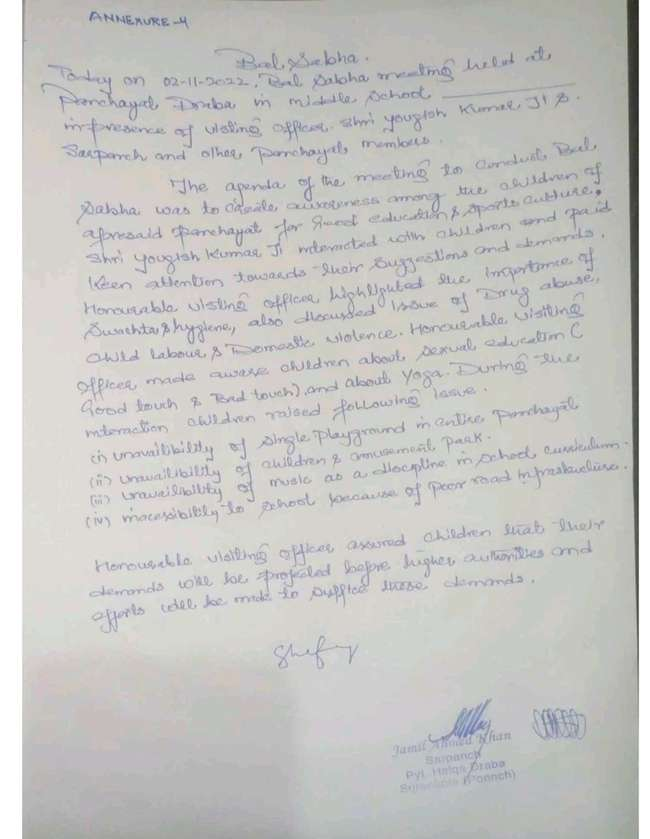 ANNEXURE-4
Bal Sabha.
Today on 02-11-2022, Bal Sabha meeting held at
Panchayat Draba in middle School
in presence of visiting officer. Shri Yougish Kumar Ji &
Sarpanch and other Panchayat members.
The agenda of the meeting to conduct Bal
Sabha was to create awareness among the children of
aforesaid Panchayat for Good education & sports culture.
Shri Yougish Kumar Ji interacted with children and paid
Keen attention towards their suggestions and demands.
Honourable visiting officer highlighted the importance of
Swachta & hygiene, also discussed issue of Drug abuse,
Child Labour & Domestic violence. Honourable visiting
officer made aware children about sexual education (
Good touch & Bad touch), and about Yoga. During the
interaction children raised following issue.
(i) unavailibility of single playground in entire Panchayat
(ii) unavailibility of children & amusement park.
(iii) unavailibility of music as a discipline in school curriculum.
(iv) inaccessibility to school because of Poor road infrastructure.
Honourable visiting officer assured children that their
demands will be projected before higher authorities and
efforts will be made to suffice those demands.
Jamil Ahmed Khan
Sarpanch
Pyt. Halqa Draba
(Poonch)